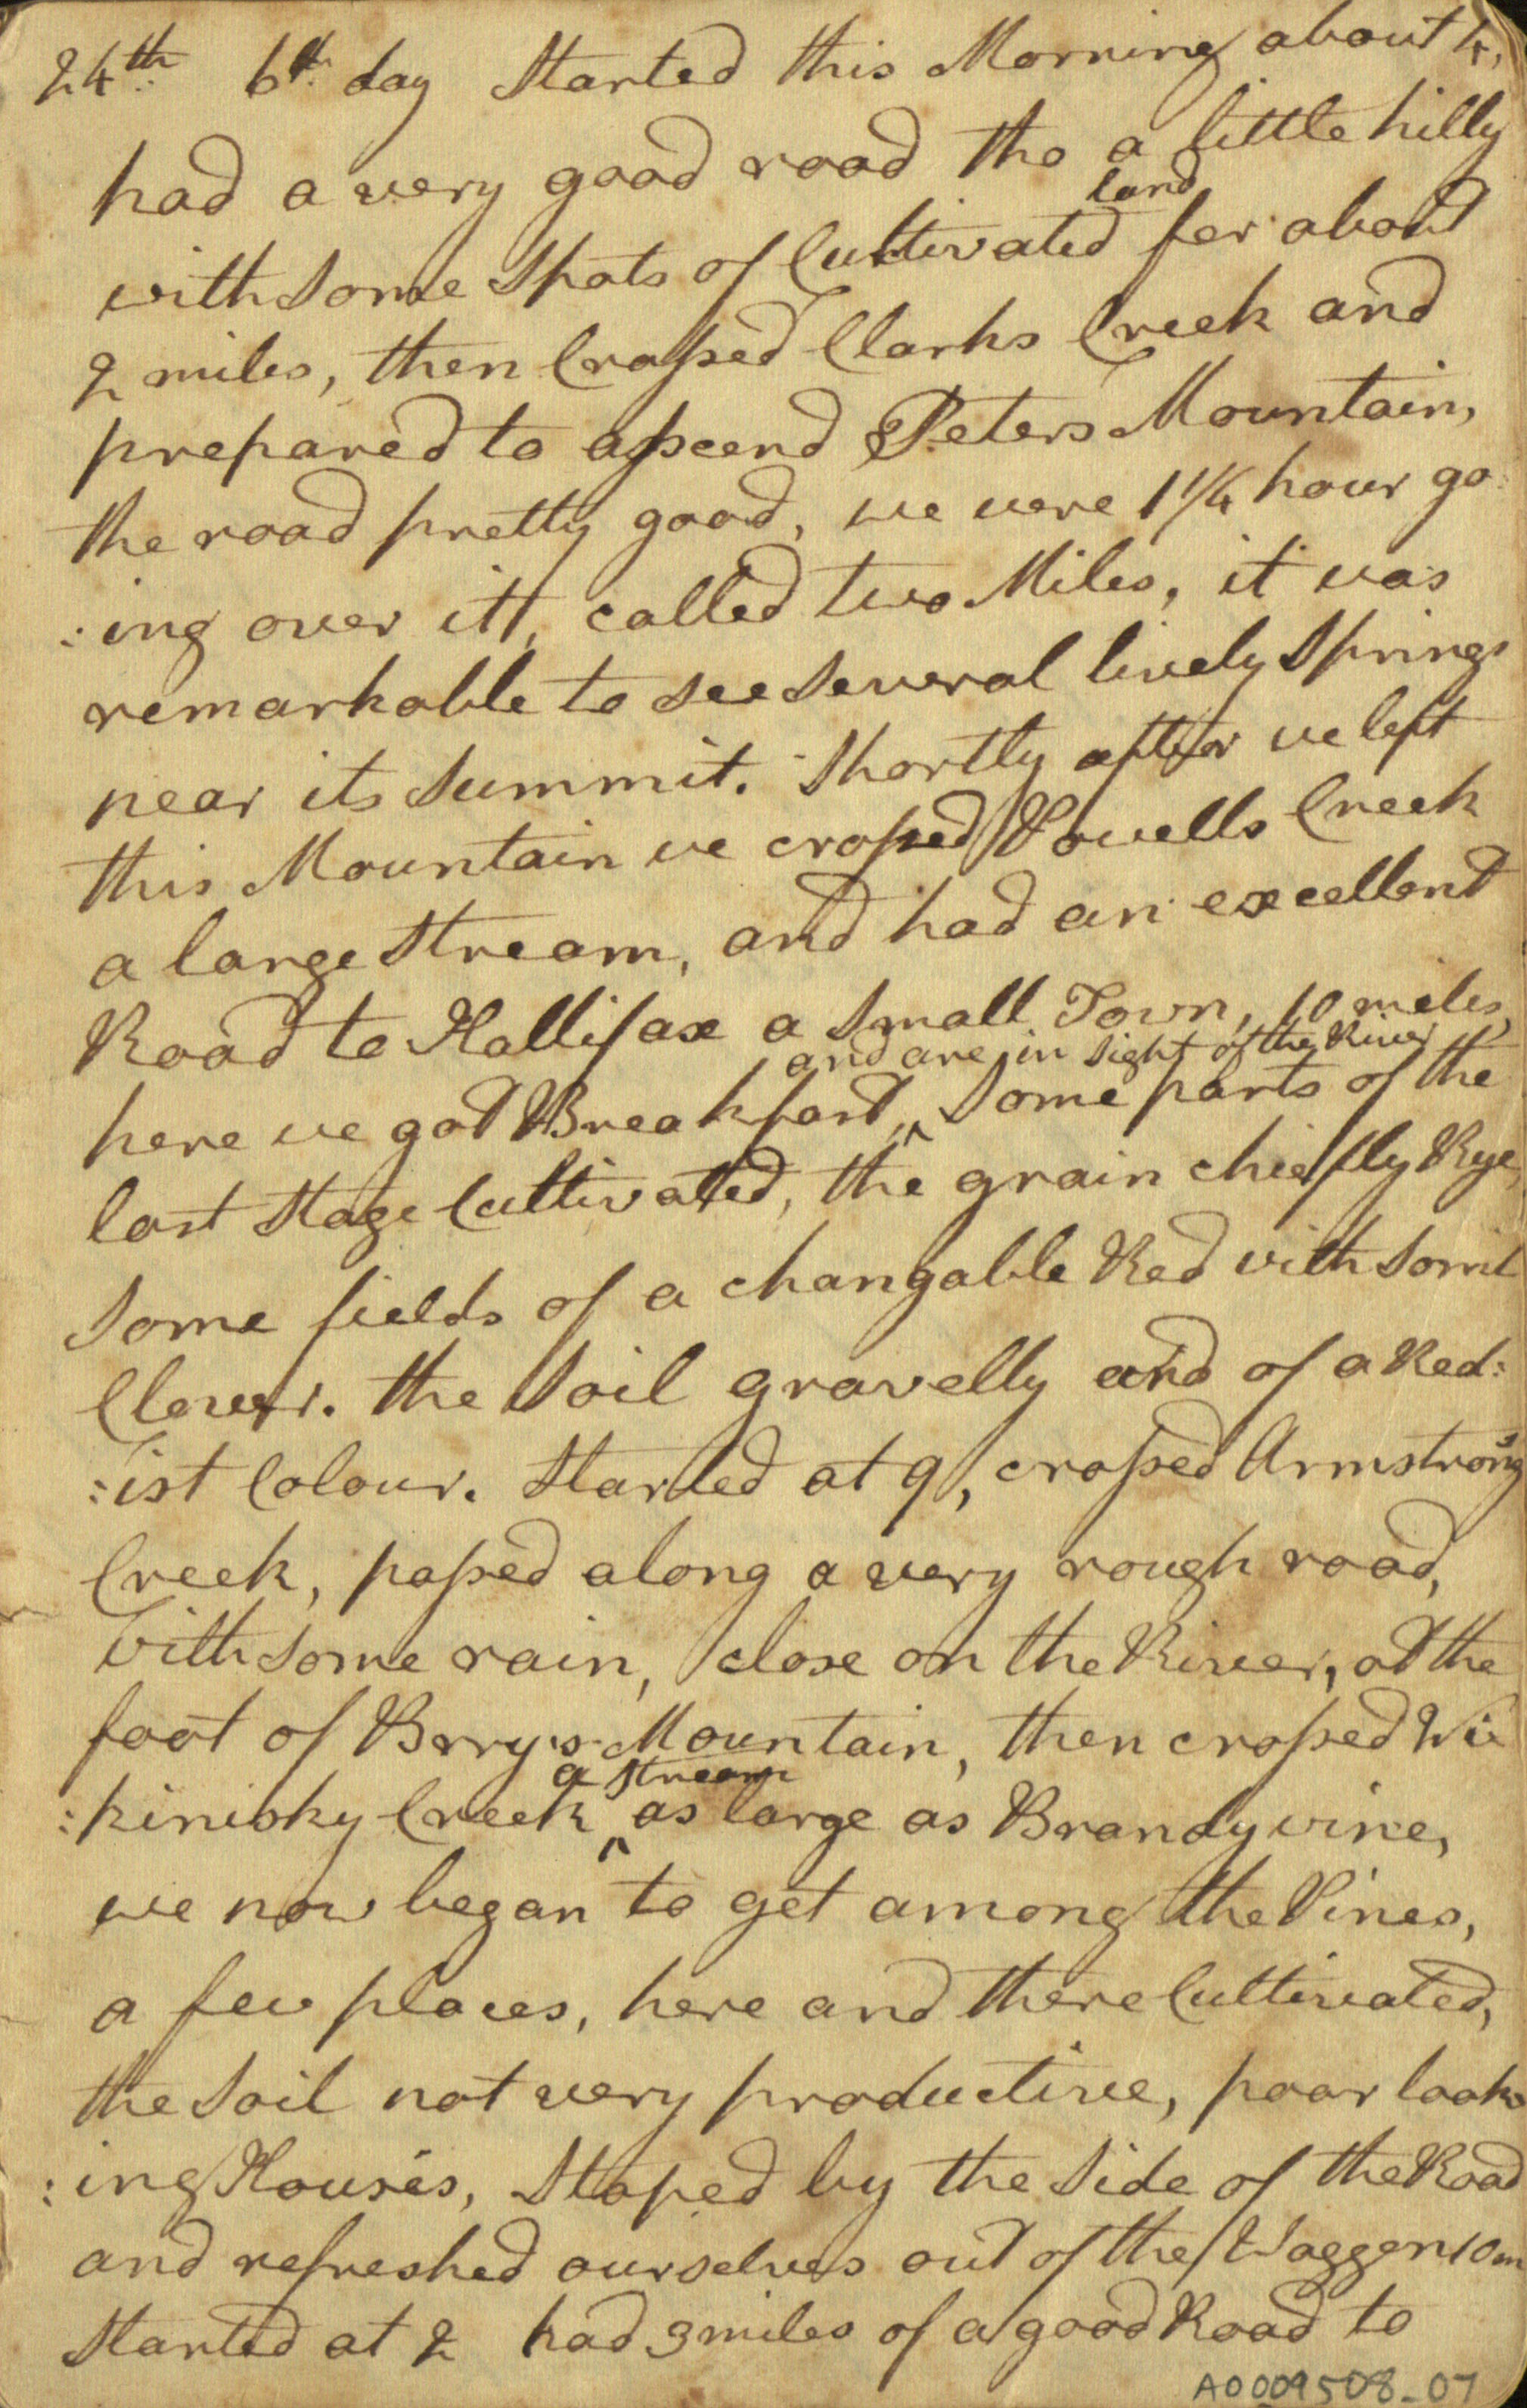 24th. 6th. day Started this Morning about 4,
had a very good road tho a little hilly
land
with some Spots of Cultivated for about
2 miles, then Crossed Clarks Creek and
prepared to asscend Peters Mountain,
the road pretty good, we were 1 1/4 hour go
:ing over itt, called two Miles, it was
remarkable to see several lively Springs
near its Summit. Shortly after we left
this Mountain we crossed Powells Creek
a large Stream, and had an excellent
Road to Hallifax a Small Town, 10 miles,
and are in Sight of the River
here we got Breakfast, ^ Some parts of the
last Stage Cultivated, the grain chiefly Rye,
Some fields of a changable Red with some
Clover. the Soil gravelly and of a Red:
:ist Colour. Started at 9, crossed Armstrongs
Creek, passed along a very rough road,
with some rain, close on the River, at the
foot of Berry's Mountain, then crossed Wi
a Stream
:kinisky Creek ^ as large as Brandywine,
we now began to get among the Pines,
a few places, here and there Cultivated,
the Soil not very productive, poor look
:ing Houses, Stoped by the Side of the Road
and refreshed ourselves out of the Waggon 10 m
Started at 2 had 3 miles of a good Road to
A0009508_07